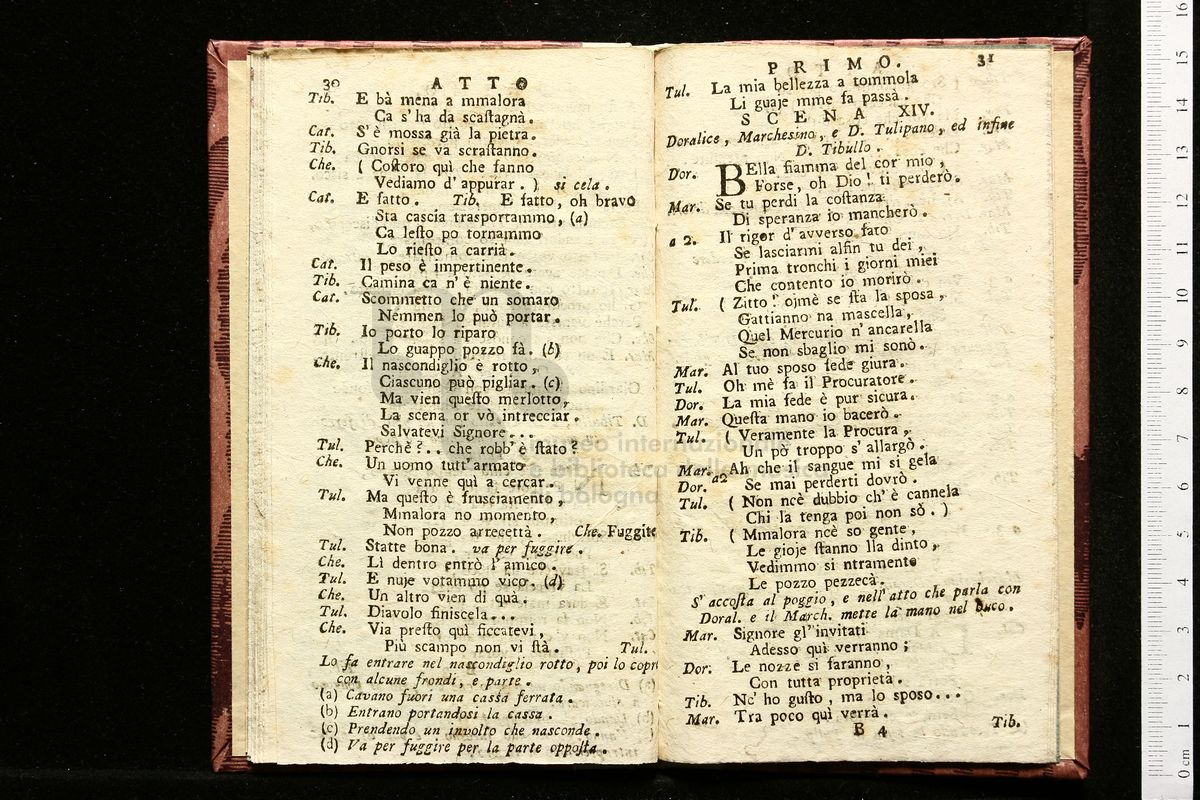 30 ATTO
Tib. E bà mena a mmalora
Ca s'ha da scaſtagnà.
Cat. S'è mossa già la pietra.
Tib. Gnorsì se va scraſtanno.
Che. ( Coſtoro quì che fanno
Vediamo d'appurar. ) si cela.
Cat. E fatto. Tib. E fatto, oh bravo
Sta cascia trasportammo, (a)
Ca leſto po tornammo
Lo rieſto a carrià.
Cat. Il peso è impertinente.
Tib. Camina ca n'è niente.
Cat. Scommetto che un somaro
Nemmen lo può portar.
Tib. Io porto lo riparo
Lo guappo pozzo fà. (b)
Che. Il nascondiglio è rotto,
Ciascuno può pigliar. (c)
Ma vien queſto merlotto,
La scena or vò intrecciar.
Salvatevi Signore...
Tul. Perchè?.. che robb' è ſtato?
Che. Un uomo tutt'armato
Vi venne quì a cercar.
Tul. Ma queſto è frusciamento,
Mmalora no momento,
Non pozzo arrecettà. Che. Fuggite
Tul. Statte bona. va per fuggire.
Che. Lì dentro entrò l'amico.
Tul. E nuje votammo vico. (d)
Che. Un altro vien di quà.
Tul. Diavolo finiscela...
Che. Via preſto quì ficcatevi,
Più scampo non vi ſtà. Tul.
Lo fa entrare nel nascondiglio rotto, poi lo copre
con alcune frondi, e parte.
(a) Cavano fuori una cassa ferrata.
(b) Entrano portandosi la cassa.
(c) Prendendo un involto che nasconde.
(d) Va per fuggire per la parte oppoſta.
PRIMO. 31
Tul. La mia bellezza a tommola
Li guaje mme fa passà.
SCENA XIV.
Doralice, Marchesino, e D. Tulipano, ed infine
D. Tibullo.
Dor. BElla fiamma del cor mio,
Forse, oh Dio! ti perderò.
Mar. Se tu perdi la coſtanza
Di speranza io mancherò.
a 2. Il rigor d'avverso fato
Se lasciarmi alfin tu dei,
Prima tronchi i giorni miei
Che contento io morirò.
Tul. ( Zitto! oimè se ſta la sposa,
Gattianno na mascella,
Quel Mercurio n'ancarella
Se non sbaglio mi sonò.
Mar. Al tuo sposo fede giura.
Tul. Oh mè fa il Procuratore.
Dor. La mia fede è pur sicura.
Mar. Queſta mano io bacerò.
Tul. ( Veramente la Procura,
Un pò troppo s'allargò.
Mar. Ah che il sangue mi si gela
Dor. a2 Se mai perderti dovrò.
Tul. ( Non ncè dubbio ch'è cannela
Chi la tenga poi non sò. )
Tib. ( Mmalora ncè so gente,
Le gioje ſtanno lla dinto,
Vedimmo si ntramente
Le pozzo pezzecà.
S'accoſta al poggio, e nell'atto che parla con
Doral. e il March. mette la mano nel buco.
Mar. Signore gl'invitati
Adesso quì verranno;
Dor. Le nozze si faranno,
Con tutta proprietà.
Tib. Ne' ho guſto, ma lo sposo...
Mar. Tra poco quì verrà.
B 4 Tib.
museo internazionale
e biblioteca della musica
bologna
0 cm 1 2 3 4 5 6 7 8 9 10 11 12 13 14 15 16